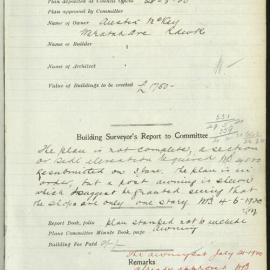 Plan deposited at Council Office
Plan approved by Committee
Name of Owner Austin McKey
Waratah Ave
Name of Builder
Name of Architect
Value of Buildings to be erected £1760-
Building Surveyor's Report to Committee
The plan is not complete, a section
or sectl elevation required
Resubmitted on 3 June. The plan is in
order, but a post awning is shewn
which I suggest be granted seeing that
the shops are only one story 4-6-1920
Report Book, folio plan stamped not to include
Plans Committee Minute Book, page awning
Building Fee Paid
Remarks
The awning sat July 21-1920
already approved